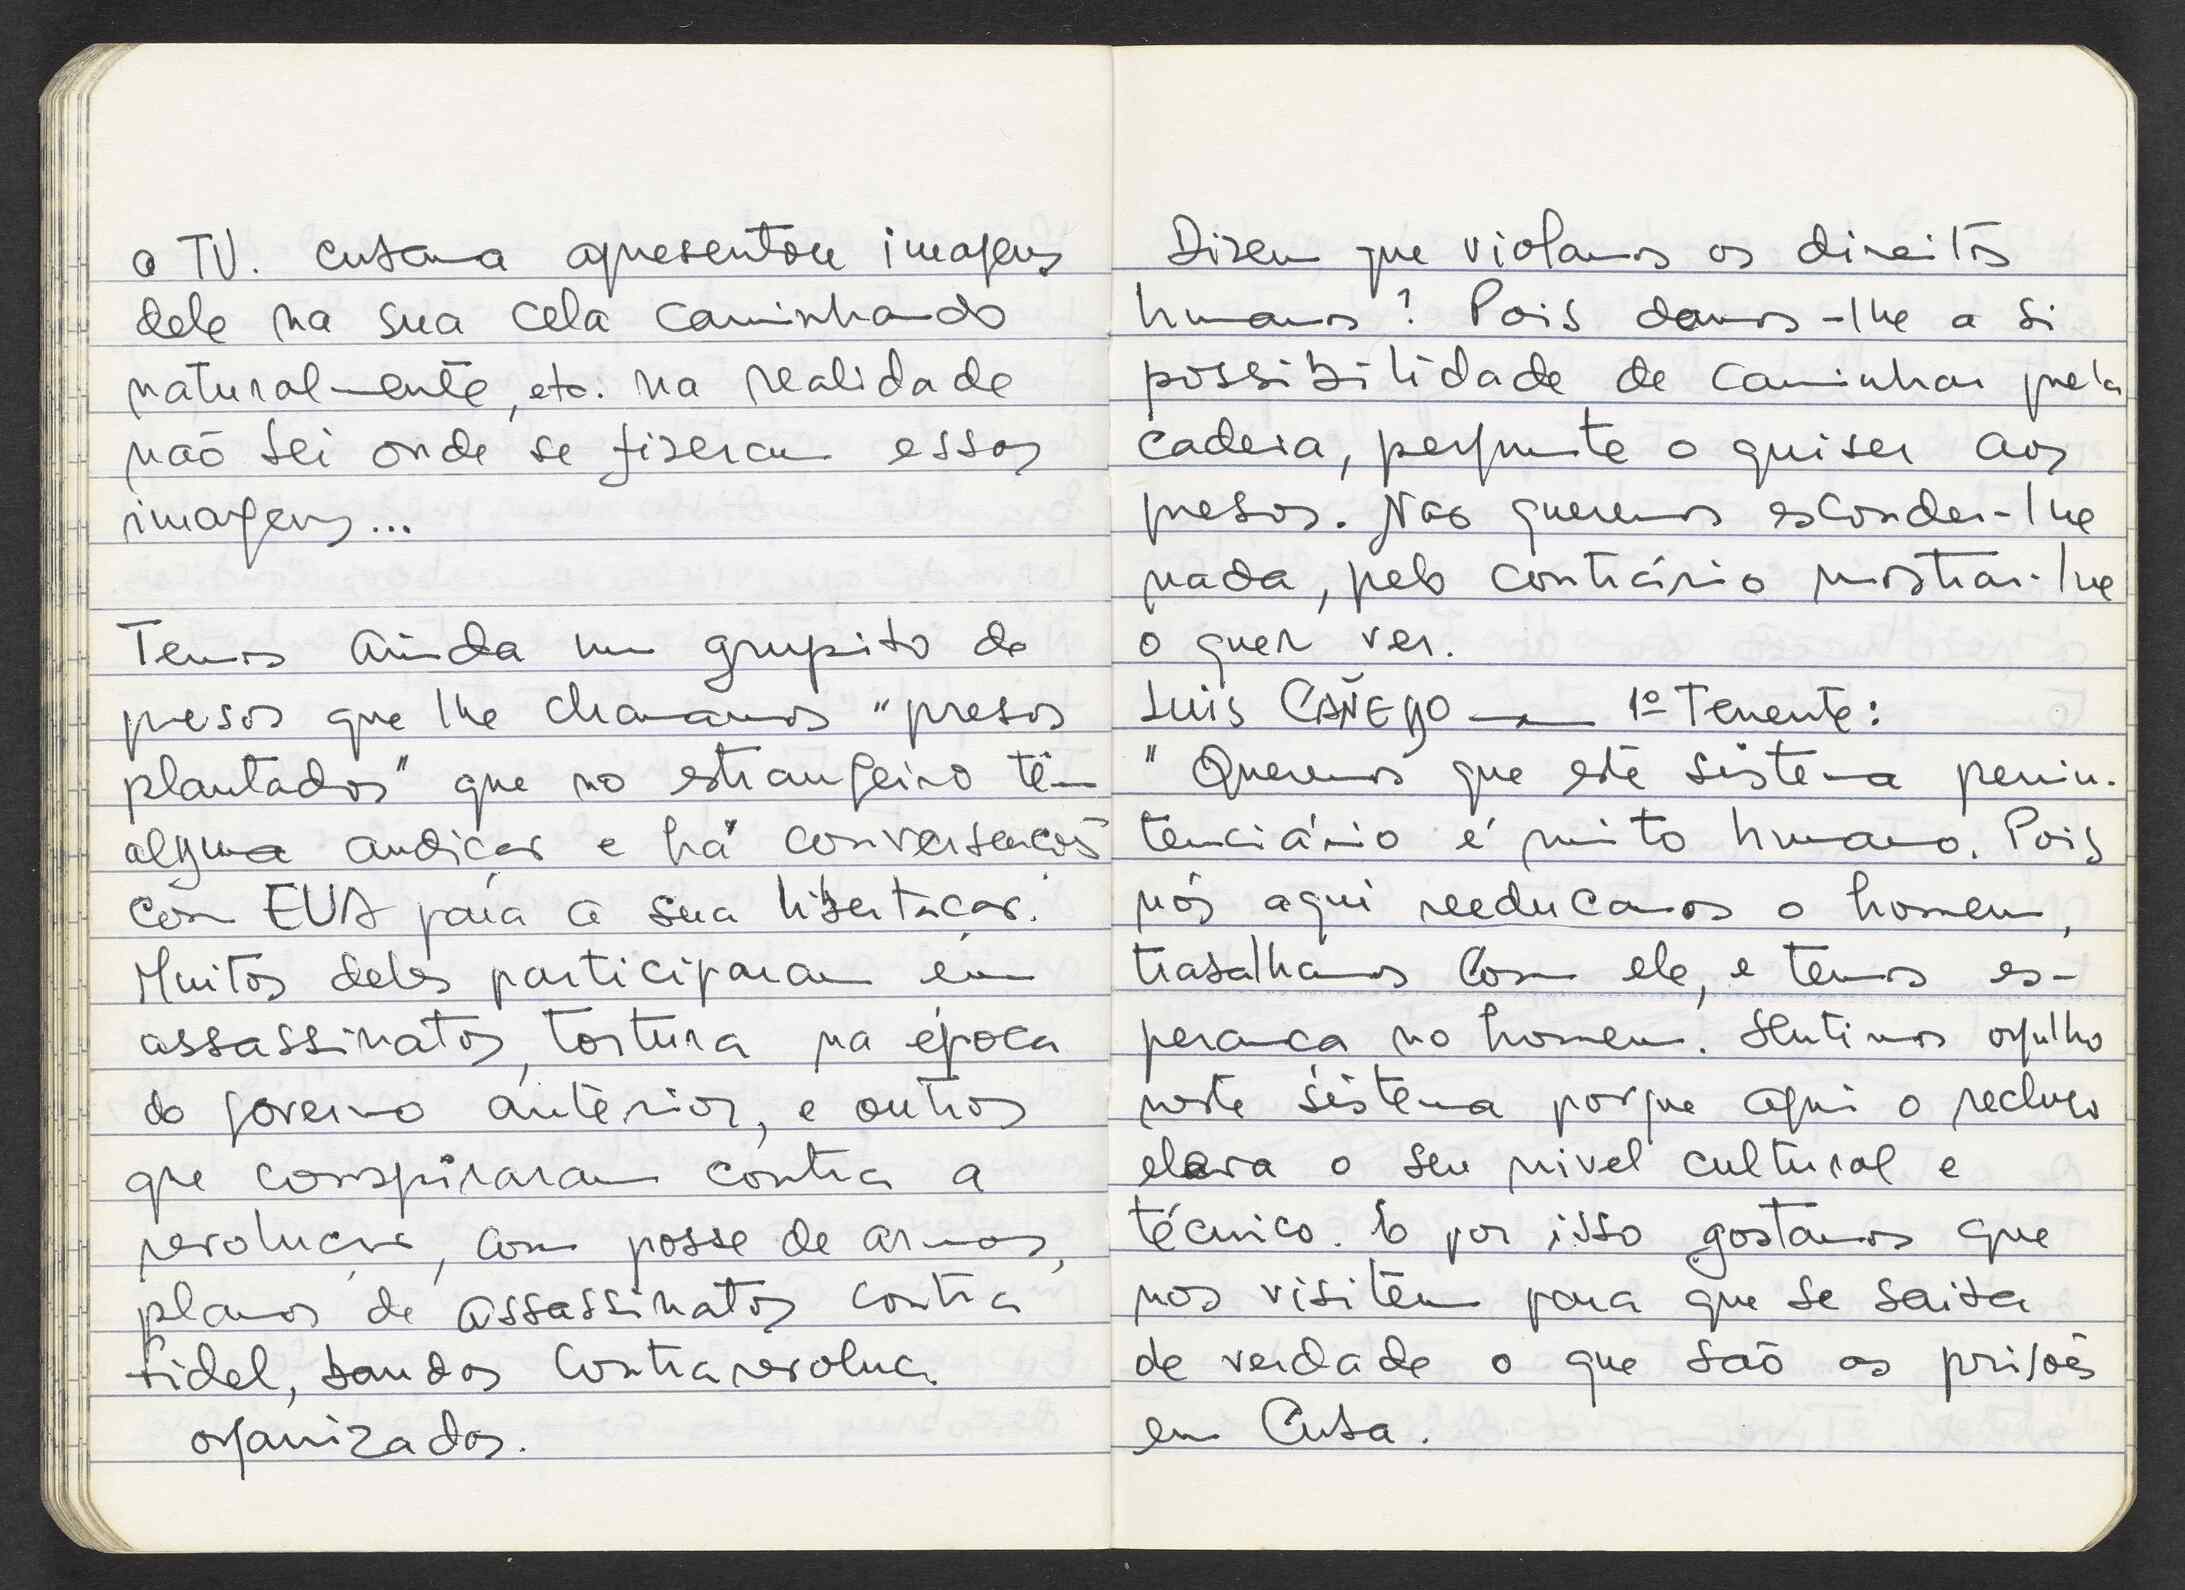 a TV. cubana apresentou imagens
dele na sua cela caminhando
naturalmente, etc. na realidade
não sei onde se fizeram essas
imagens...
Temos ainda um grupito de
presos que lhe chamamos "presos
plantados" que no estrangeiro têm
alguma audição e há conversações
com EUA para a sua libertação.
Muitos deles participaram em
assassinatos, tortura na época
do governo anterior, e outros
que conspiraram contra a
revolução, com posse de armas,
planos de assassinatos contra
Fidel, bandos contrarevoluc.
organizados.
Dizem que violamos os direitos
humanos? Pois damos-lhe a si
possibilidade de caminhar pela
cadeia, pergunte o quiser aos
presos. Não queremos esconder-lhe
nada, pelo contrário mostrar-lhe
o quer ver.
Luis — 1º Tenente:
"Queremos que este sistema penin-
tenciário é muito humano. Pois
nós aqui reeducamos o homem,
trabalhamos com ele, e temos es-
perança no homem. Sentimos orgulho
neste sistema porque aqui o recluso
eleva o seu nivel cultural e
técnico. E por isso gostamos que
nos visitem para que se saiba
de verdade o que são as prisões
em Cuba.